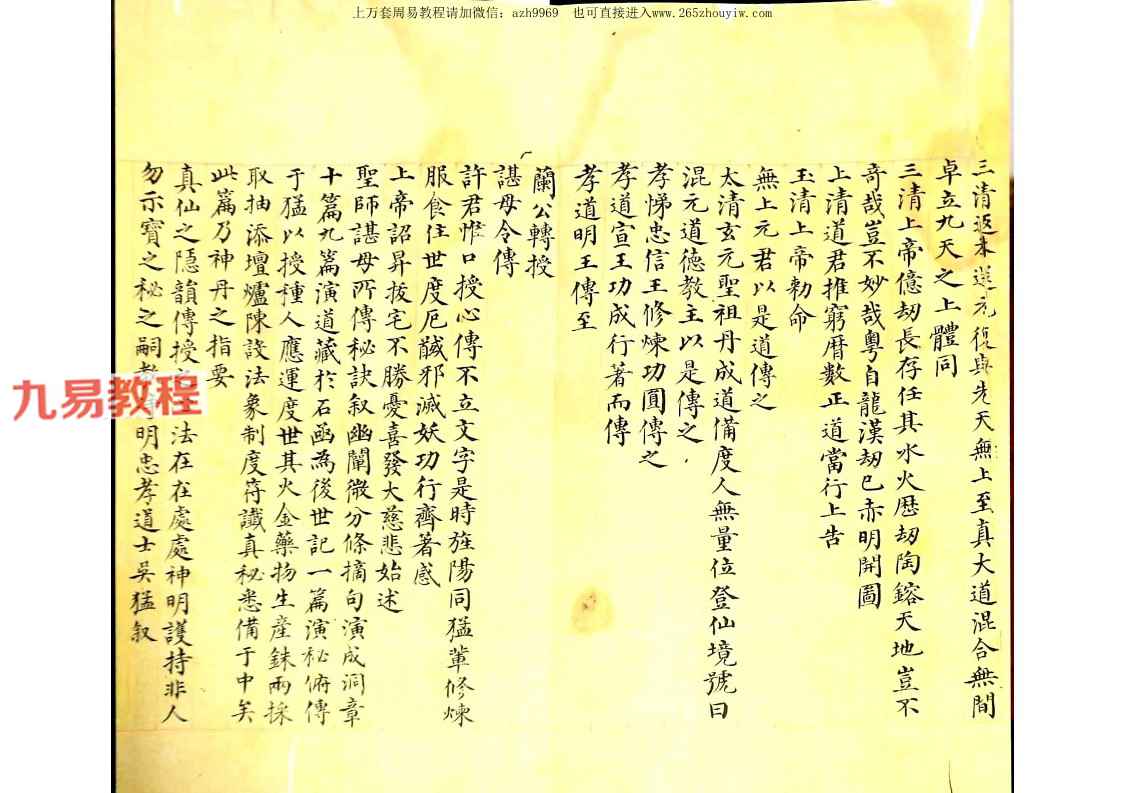 上万套周易教程请加微信：azh9969　也可直接进入www.265zhouyiw.com
三清返本還元復與先天無上至真大道混合無間
卓立九天之上體同
三清上帝億劫長存任其水火歷劫陶鎔天地豈不
竒哉豈不妙哉粵自龍漢劫已赤明開圖
上清道君推窮曆數正道當行上告
玉清上帝勑命
無上元君以是道傳之
太清玄元聖祖丹成道備度人無量位登仙境號曰
混元道德教主以是傳之
孝悌忠信王修煉功圓傳之
孝道宣王功成行著而傳
孝道明王傳至
蘭公轉授
諶母令傳
許君惟口授心傳不立文字是時旌陽同猛輩修煉
服食住世度厄馘邪滅妖功行齊著感
上帝詔昇拔宅不勝憂喜發大慈悲始述
聖師諶母所傳秘訣叙幽闡微分條摘句演成洞章
十篇九篇演道藏於石函為後世記一篇演秘俯傳
于猛以授種人應運度世其火金藥物生產銖兩採
取抽添壇爐陳設法象制度符讖真秘悉備于中矣
此篇乃神丹之指要
真仙之隱韻傳授 法在在處處神明護持非人
勿示寶之秘之嗣教 明忠孝道士吳猛叙
九易教程